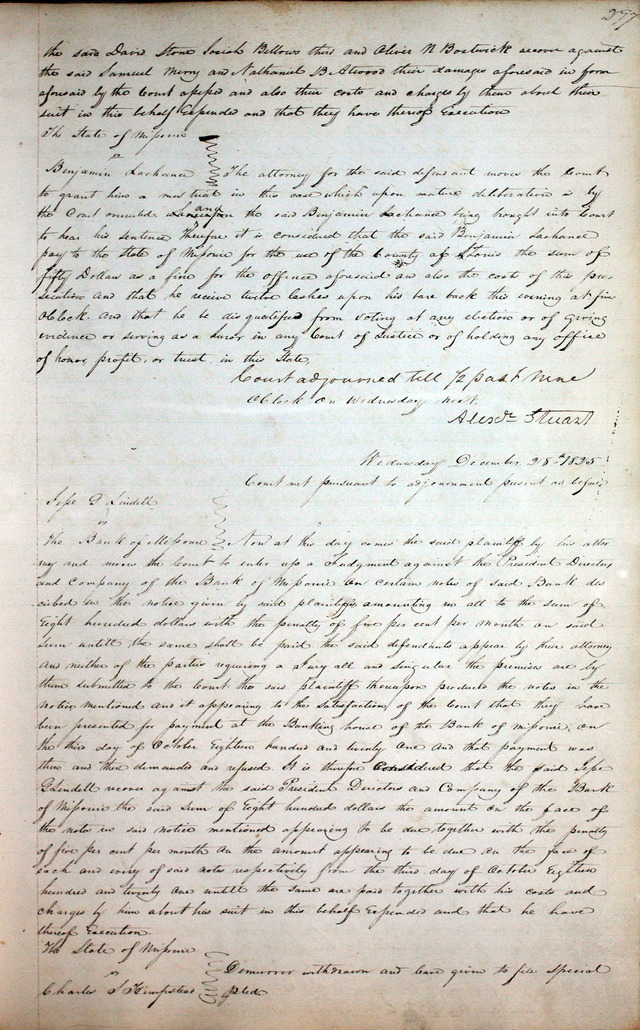 297
the said David Stone Josiah Bellows third and Oliver N Bostwick recover against
the said Samuel Merry and Nathaniel B Atwood their damages aforesaid in form
aforesaid by the Court assessed and also their costs and charges by them about their
suit in this behalf Expended and that they have thereof Execution
The State of Missouri
vs
Benjamin Lachance The attorney for the said defendant moves the Court
to grant him a new trial in this case which upon mature deliberation is by
the Court overruled and the said Benjamin Lachance being brought into Court
to hear his sentence Therefore it is considered that the said Benjamin Lachance
pay to the State of Missouri for the use of the County of St Louis the sum of
fifty Dollars as a fine for the offence aforesaid and also the costs of this pro
secution and that he receive twelve lashes upon his bare back this evening at five
Oclock. And that he be disqualified from voting at any election or of giving
evidence or serving as a Juror in any Court of Justice or of holding any office
of honor, profit, or trust in this State
Court adjourned till 1/2 past Nine
Oclock on Wednesday next.
Alexdr Stuart
Wednesday December 28th 1825
Court met pursuant to adjournment present as before
Jesse G Lindell
vs
The Bank of Missouri Now at this day comes the said plaintiff by his attor
ney and moves the Court to enter up a Judgment against the President Directors
and Company of the Bank of Missouri on certain notes of said Bank des
cribed in the notice given by said plaintiff amounting in all to the sum of
Eight hundred dollars with the penalty of five per cent per month on said
sum untill the same shall be paid the said defendants appear by their attorney
and neither of the parties requiring a Jury all and singular the premises are by
them submitted to the Court the said plaintiff thereupon produces the notes in the
notice mentioned and it appearing to the Satisfaction of the Court that they have
been presented for payment at the Banking house of the Bank of Missouri on
the third day of October Eighteen hundred and twenty one and that payment was
then and there demanded and refused. It is therefore Considered that the said Jesse
G Lindell recover against the said President Directors and Company of the Bank
of Missouri the said sum of Eight hundred dollars the amount on the face of
the notes in said notice mentioned appearing to be due together with the penalty
of five per cent per month on the amount appearing to be due on the face of
each and every of said notes respectively from the third day of October Eighteen
hundred and twenty one untill the same are paid together with his costs and
charges by him about his suit in this behalf Expended and that he have
thereof Execution.
The State of Missouri
vs
Demurrer withdrawn and leave given to file special
Charles S Hempstead pleas